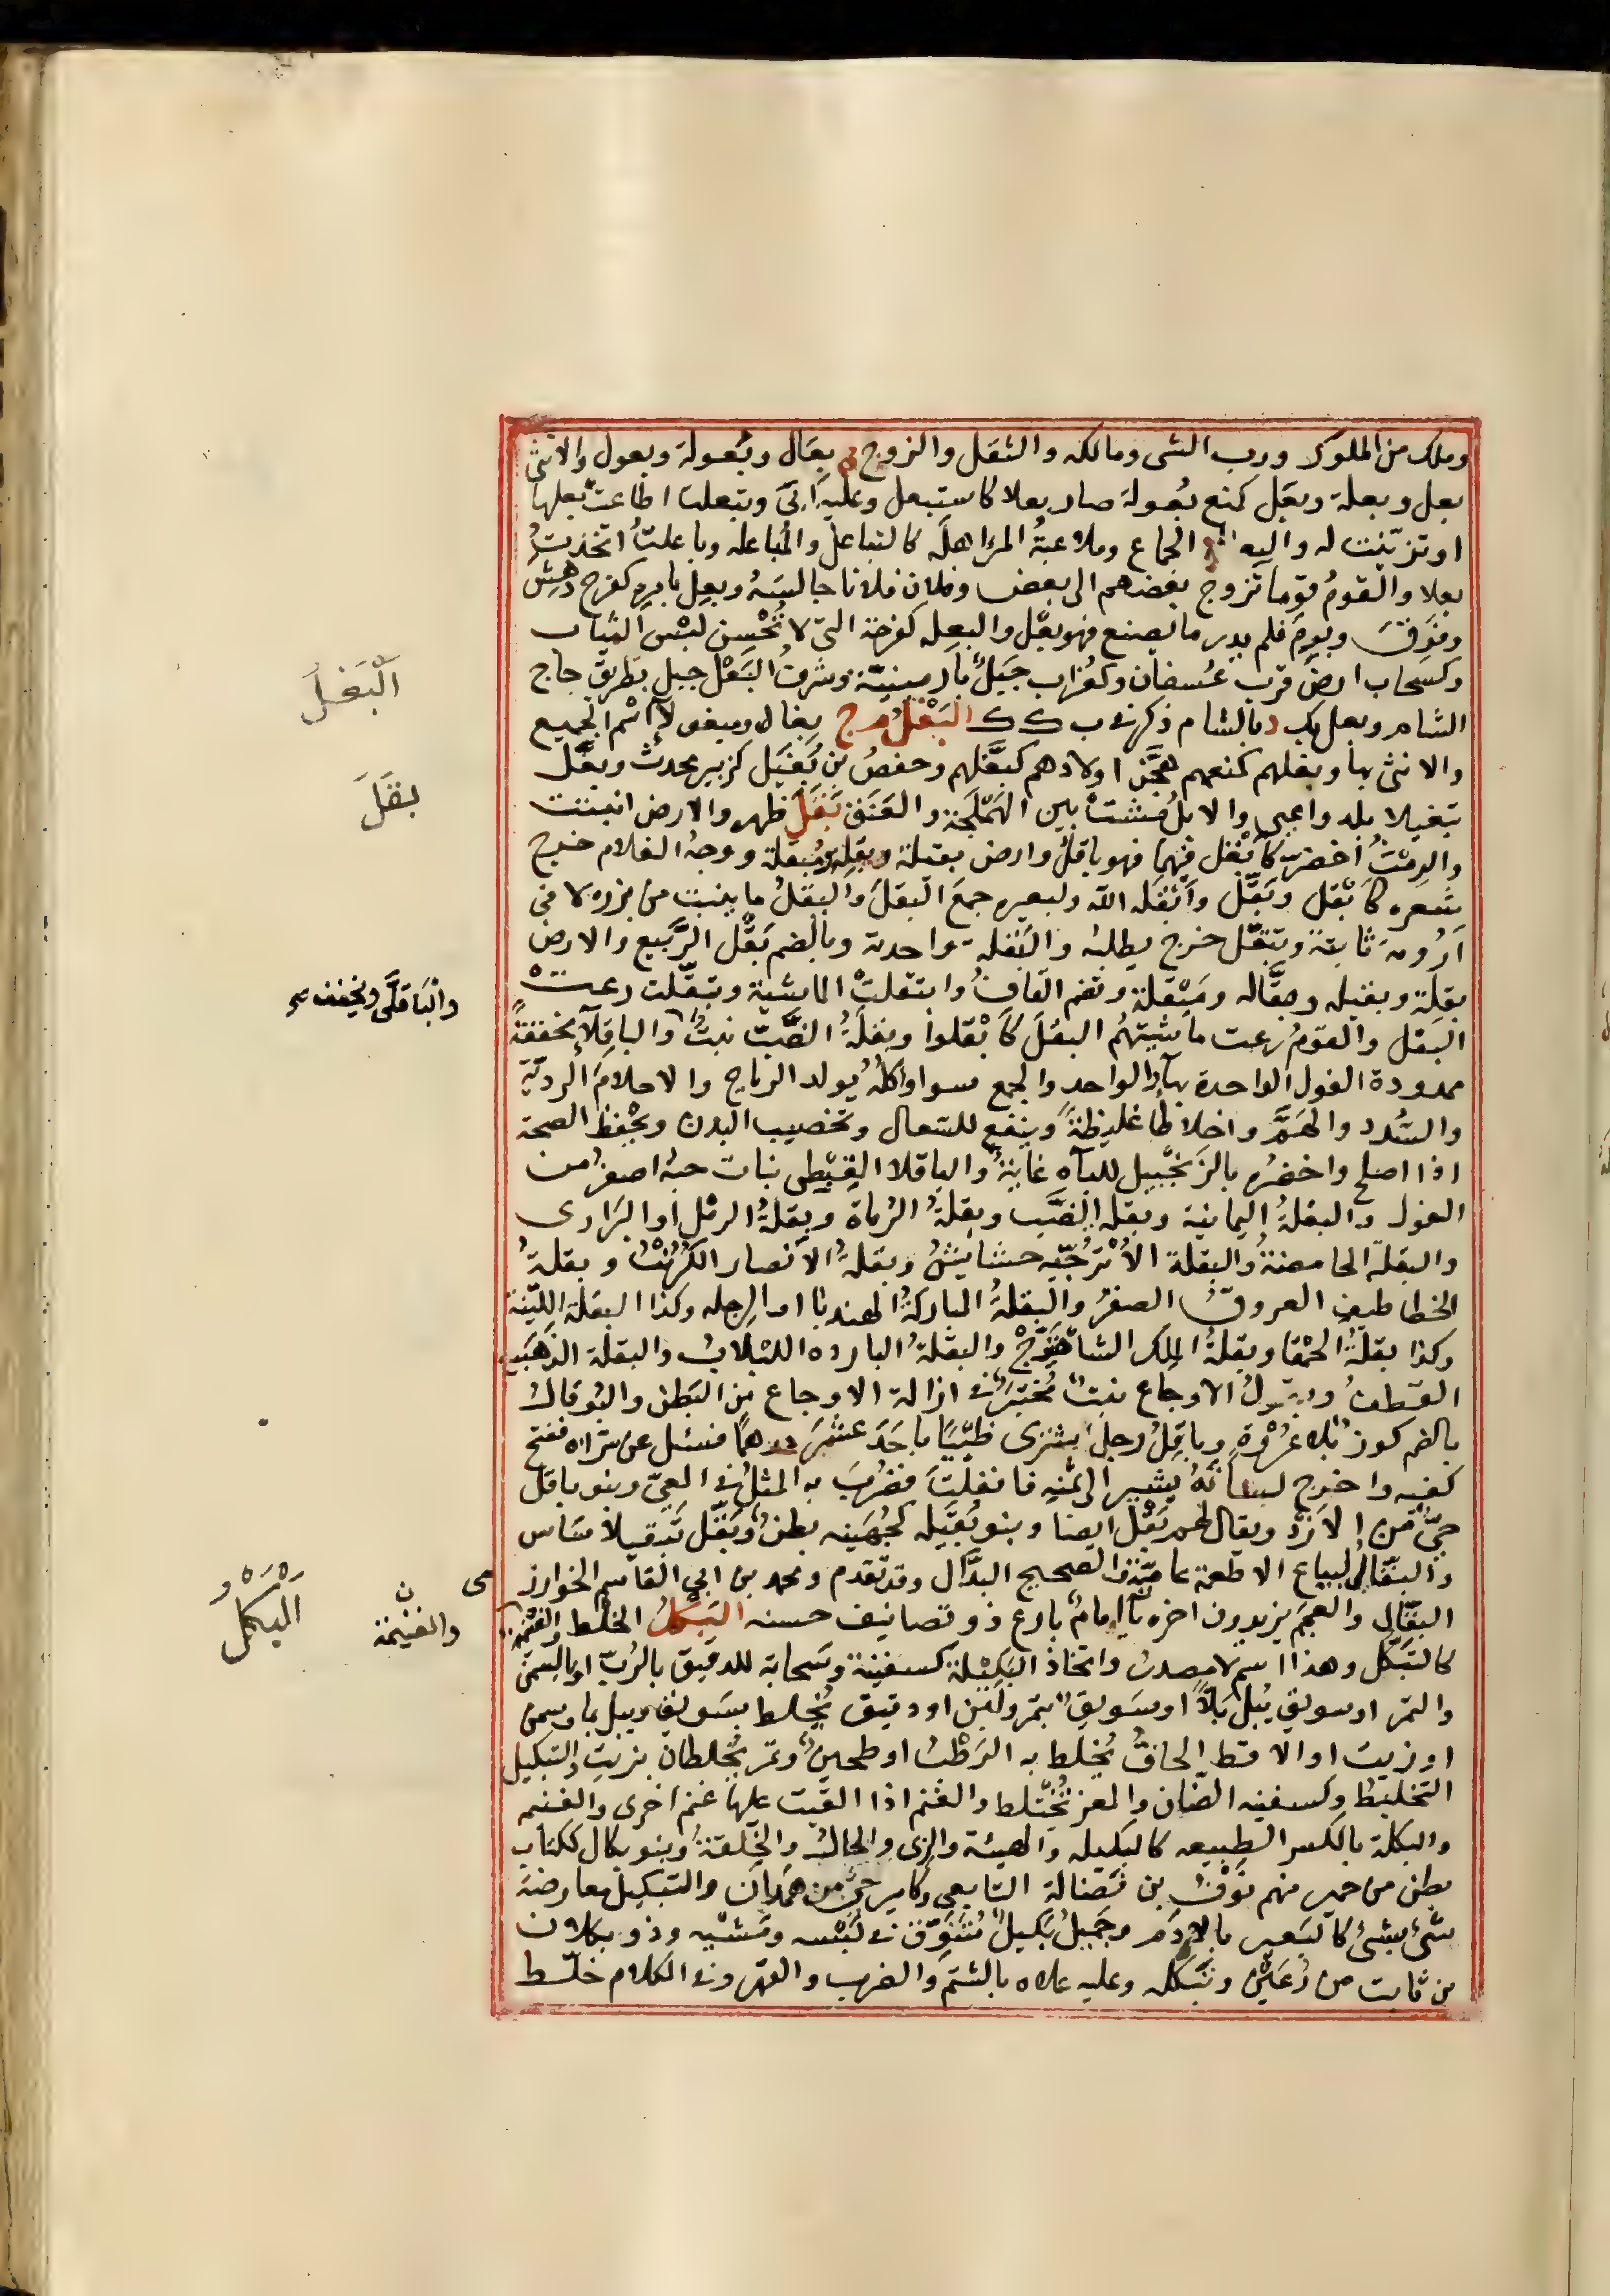 وملك من الملوك ورب الشى ومالكه والثقل والزوج ج بعال وبُعولة وبعول والانثى
بعل وبعلة وبعَل كمنع بُعولة صار بعلا كاستبعل وعليه ابَى وتبعلت اطاعت بعلها
او تزيّنت له والبعال الجماع وملاعبةُ المرء اهلَه كالتباعل والمُباعله وباعلتْ اتخذت
بعلا والقومُ قوما تزوج بعضهم الى بعض وفلان فلانا جالسَهُ وبعِل بامره كفرح دهِش
وفَرِق وبرِمَ فلم يدر ما يصنع فهو بعِل والبعِله كفرحة التى لا تُحْسِن لبْس الثياب
وكسحاب ارضٌ قرب عُسفان وكغُراب جبَلٌ بارمينيّة وشرفُ البَعْل جبل بطريق حاج
الشام وبعل بك د بالشام ذكر فى ب ك ك البَغْلُ م ج بغال ومبغولآ اسْم الجميع
والانثى بها وبغلهم كمنعهم هجَّن اولادهم كبغّلهم وحفصُ بن بُغَيل كزبير محدث وبغّل
تبغيلا بلد واعيى والابلُ مشت بين الهَمْلَجة والعَنَق بَقَلَ ظهر والارض انبتت
والرِمْثُ اخضرّ كابْقل فيهما فهو باقلٌ وارض بقيلة وبقِله ومُبقلة ووجهُ الغلام خرج
شعره كابْقل وبَقّل وابْقَله الله ولبعيره جمعَ البقلَ والبقلُ ما ينبت من بزره لا فى
اَرُومة ثابتة وتبقّل خرج يطلبه والبَقْلة واحدته وبالضم بَقْل الرَّبيع والارض
بقِلة وبقيله وبقّاله ومَبْقلة وتضم القافُ وابتقلتْ الماشية وتبقّلت رعت
البقل والقومُ رعت ماشيتهُم البقلَ كابْقلوا وبقلةُ الضَّبّ نبتٌ والباقِلآ مخففةً
ممدودة الفول الواحدة بهآ او الواحد والجمع سوا واكلُه يولد الرياح والاحلامَ الرديّة
والسُدد والهَمَّ واخلاطًا غليظةً وينفع للسعال وتخصيب البدن ويحْفظ الصحة
اذا اصلح واخضرُه بالزَنجبيل للبآه غايةٌ والباقلا القِبْطى نبات حبهُ اصغرُ من
الفول والبقلةُ اليمانية وبقلة الضَّب وبقلةُ الرُماة وبقلةُ الرمْل او البَرارى
والبقلة الحامضةُ والبقلة الأُتْرجّيه حشايشُ وبقلةُ الانصار الكُرُنْبُ وبقلةُ
الخطاطيف العروقُ الصفرُ والبقلةُ المباركةُ الهندبا او الرِجله وكذا البقلة الليّنة
وكذا بقلةُ الحمْقا وبقلةُ الملك الشاهتَرّجْ والبقلةُ البارده اللبلاب والبقلة الذهبيه
القطفُ وبقولُ الاوجاع نبتٌ مُختبَرٌ فى ازالة الاوجاع من البَطن والبُوقال
بالضم كوز بلا عُرْوةٍ وباقلٌ رجلٌ اشترى ظَبْيًا باحَدَ عشَرَ درهمًا فسئل عن شراه ففتح
كفيه واخرج لسانَهُ يشير الى ثمنِه فانفلتَ فضُرِبَ به المثلُ فى العِىّ وبنو باقل
حىٌ من الازْد ويقال لهم بَقْل ايضا وبنو بُقَيْله كجُهَينه بطنٌ وبَقّل تبقيلا ساس
والبقّالُ لبياع الاطعمة عاميّة والصحيح البدَّال وقد تقدم ومحمد بن ابى القاسم الخوارزمى
البقّالى والعجمُ يزيدون اخره يآ امامٌ بارع ذو تصانيف حسنه البَكْلُ الخلْط والغنيمة
كالتبَكّل وهذا اسم لا مصدرٌ واتخاذ البَكِيلة كسفينة وسَحابة للدقيق بالرُبّ او بالسمن
والتمر او سويق يُبلّ بَلاًّ او سَويقٌ بتمر ولَبَن او دقيق يُخلط بسَويق ويبل بماء وسمن
او زيت او الاقط الجافُ يُخلط به الرَطْبُ او طحينٌ وتمر يُخلطان بزيت والتبكيل
التخليط وكسفينه الضّان والمعز تُختَلط والغنم اذا القيت عليها غنم اخرى والغنيمه
والبكلة بالكسر الطبيعه كالبكيله والهيئة والزى والحالُ والخِلقةُ وبنو بكال ككتاب
بطن من حمير منهم نَوْفُ بن فَضالة التابعى وكامير حىٌّ من همْدان والتبكيلُ معارضة
شَىء بشىء كالبَعير بالادَم وجَميلٌ بَكيلٌ مُتَنَوِّق فى لُبْسه ومَشْيِه وذو بكلان
بن ثابت من رُعَيْن وتبَكّله وعليه علاه بالشتم والضرب والقهر وفى الكلام خلّط
اَلْبَغْلُ
بَقَلَ
والْبَاقلَّى ويخفف
اَلْبَكْلُ
والغنيمة